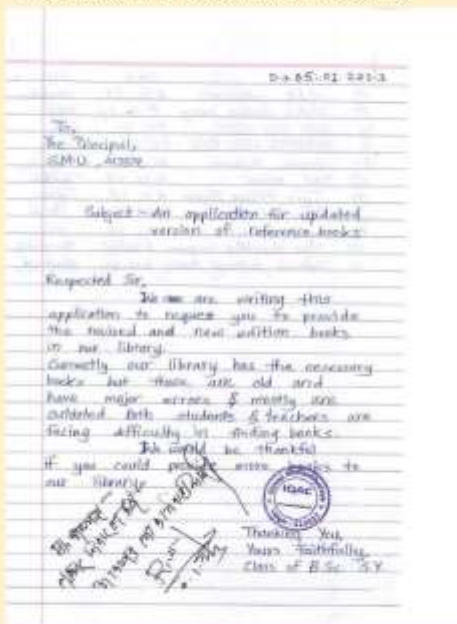 To,
The Principal,
Subject - An application for updated
version of reference books
Respected Sir,
We are writing this
application to request you to provide
the revised and new edition books
in our library.
Currently our library has the necessary
books but those are old and
have major errors & mostly are
outdated both students & teachers are
facing difficulty in finding books.
We would be thankful
if you could provide more books to
our library
IQAC
Thanking You,
Yours Faithfully
Class of B.Sc. S.Y.